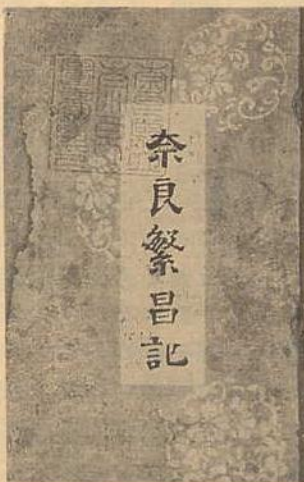 奈良繁昌記